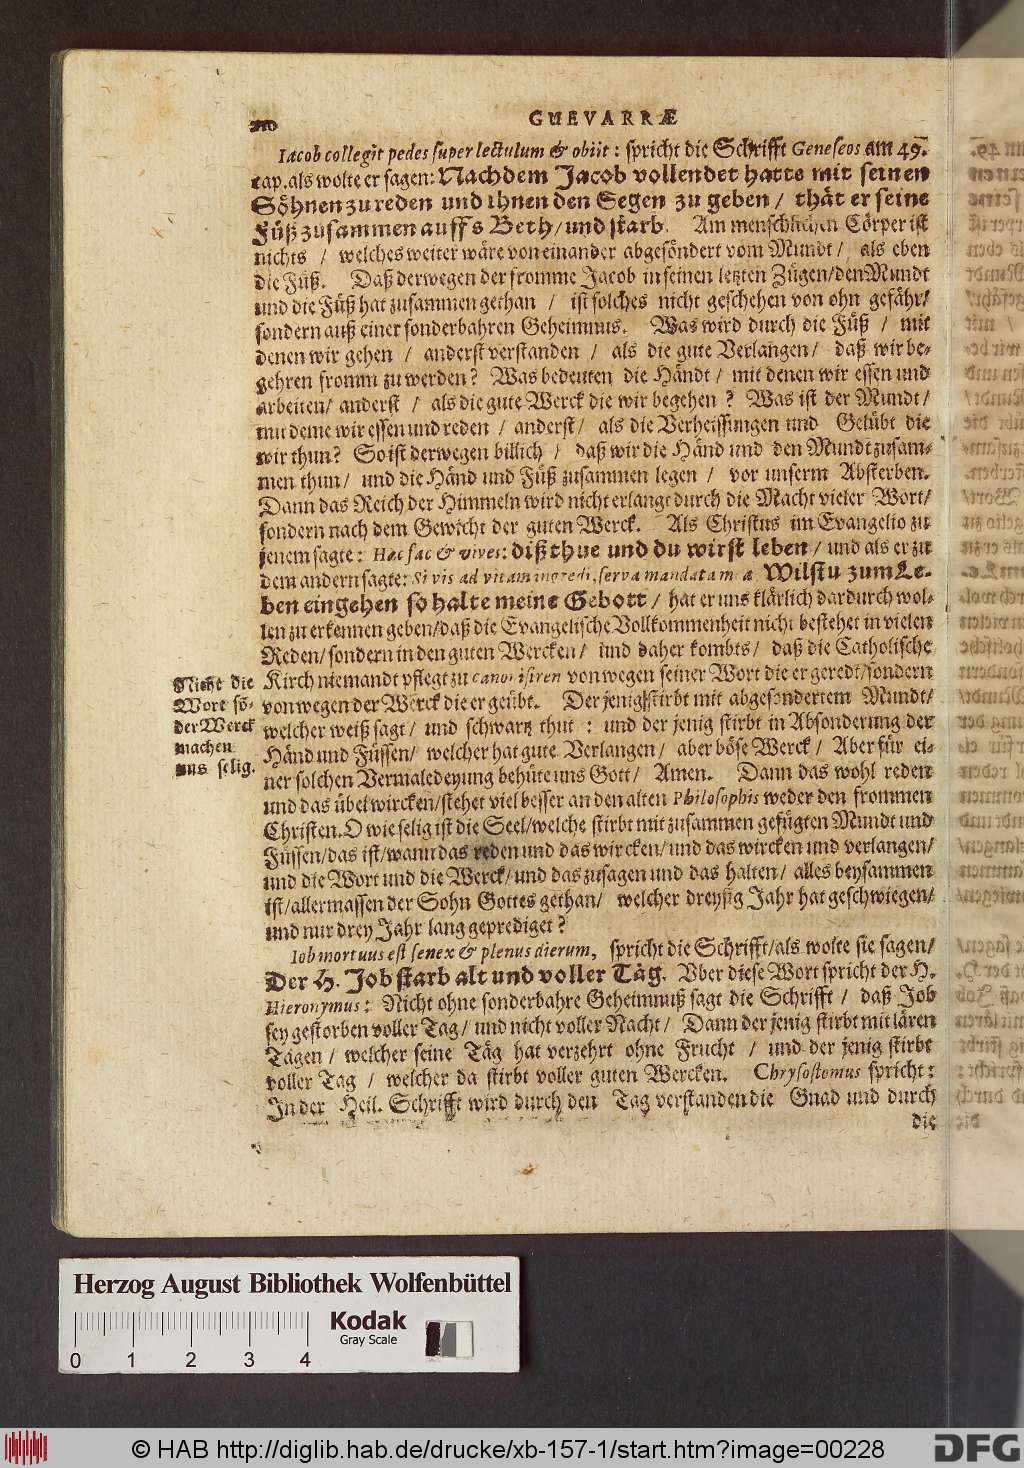 210
GUEVARRÆ
Iacob collegit pedes super lectulum & obiit: spricht die Schrifft Geneseos am 49.
cap. als wolte er sagen: Nachdem Jacob vollendet hatte mit seinen
Söhnen zu reden und ihnen den Segen zu geben / thät er seine
Füß zusammen auffs Beth / und starb. Am menschlichen Cörper ist
nichts / welches weiter wäre von einander abgesöndert vom Mundt / als eben
die Füß. Daß derwegen der fromme Jacob in seinen letzten Zügen / den Mundt
und die Füß hat zusammen gethan / ist solches nicht geschehen von ohn gefähr /
sondern auß einer sonderbahren Geheimnus. Was wird durch die Füß / mit
denen wir gehen / anderst verstanden / als die gute Verlangen / daß wir be-
gehren fromm zu werden? Was bedeuten die Händt / mit denen wir essen und
arbeiten / anderst / als die gute Werck die wir begehen? Was ist der Mundt /
mit deme wir essen und reden / anderst / als die Verheissungen und Gelübt die
wir thun? So ist derwegen billich / daß wir die Händ und den Mundt zusam-
men thun / und die Händ und Füß zusammen legen / vor unserm Absterben.
Dann das Reich der Himmeln wird nicht erlangt durch die Macht vieler Wort /
sondern nach dem Gewicht der guten Werck. Als Christus im Evangelio zu
jenem sagte: Hoc fac & vives: diß thue und du wirst leben / und als er zu
dem andern sagte: Si vis ad vitam ingredi, serva mandata Wilstu zum Le-
ben eingehen so halte meine Gebott / hat er uns klärlich dardurch wol-
len zu erkennen geben / daß die Evangelische Vollkommenheit nicht bestehet in vielen
Reden / sondern in den guten Wercken / und daher kombts / daß die Catholische
Kirch niemandt pflegt zu canonisiren von wegen seiner Wort die er geredt / sondern
von wegen der Werck die er geübt. Der jenig stirbt mit abgesondertem Mundt /
welcher weiß sagt / und schwartz thut: und der jenig stirbt in Absonderung der
Händ und Füssen / welcher hat gute Verlangen / aber böse Werck / Aber für ei-
ner solchen Vermaledeyung behüte uns Gott / Amen. Dann das wohl reden
und das übel wircken / stehet viel besser an den alten Philosophis weder den frommen
Christen. O wie selig ist die Seel / welche stirbt mit zusammen gefügten Mundt und
Füssen / das ist / wann das reden und das wircken / und das wircken und verlangen /
und die Wort und die Werck / und das zusagen und das halten / alles beysammen
ist / allermassen der Sohn Gottes gethan / welcher dreysig Jahr hat geschwiegen /
und nur drey Jahr lang geprediget?
Nicht die
Wort sö-
der Werck
machen
uns selig.
Iob mortuus est senex & plenus dierum, spricht die Schrifft / als wolte sie sagen /
Der H. Job starb alt und voller Täg. Uber diese Wort spricht der H.
Hieronymus: Nicht ohne sonderbahre Geheimnuß sagt die Schrifft / daß Job
sey gestorben voller Tag / und nicht voller Nacht / Dann der jenig stirbt mit lären
Tägen / welcher seine Täg hat verzehrt ohne Frucht / und der jenig stirbt
voller Tag / welcher da stirbt voller guten Wercken. Chrysostomus spricht:
In der Heil. Schrifft wird durch den Tag verstanden die Gnad und durch
die
Herzog August Bibliothek Wolfenbüttel
Kodak
Gray Scale
0 1 2 3 4
© HAB http://diglib.hab.de/drucke/xb-157-1/start.htm?image=00228
DFG